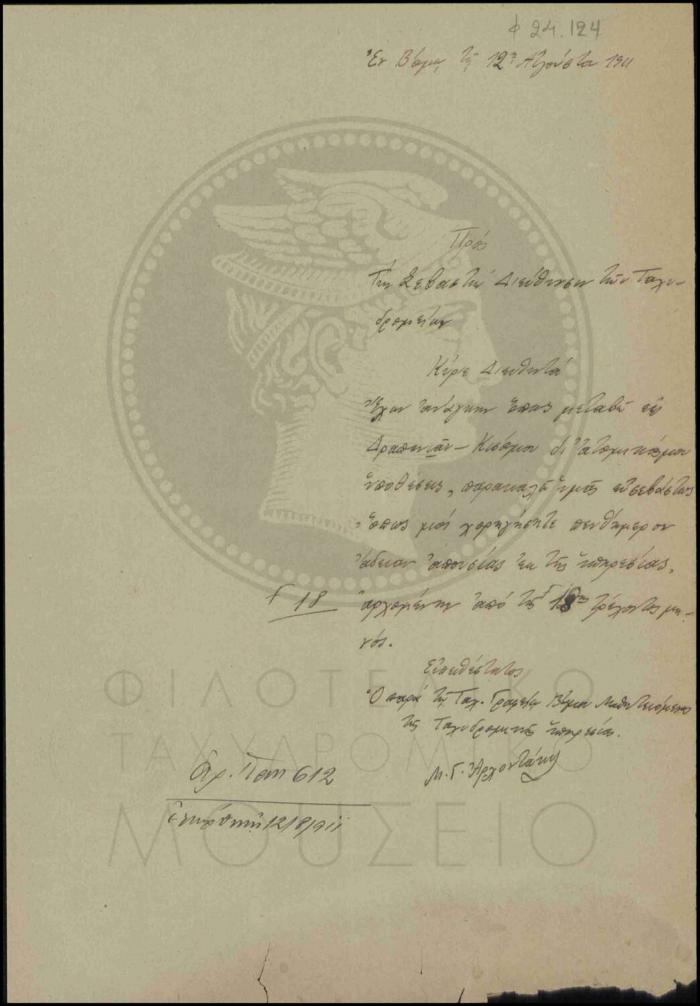 φ 24.124
Ἐν Βάμῳ τῇ 12ῃ Αὐγούστου 1911
Πρὸς
Τὴν Σεβαστὴν Διεύθυνσιν τῶν Ταχυ-
δρομείων
Κύριε Διευθυντά
Ἔχων ἀνάγκην ὅπως μεταβῶ εἰς
Δραπανιᾶν – Κισάμου δι' ἀτομικάς μου
ὑποθέσεις, παρακαλῶ ὑμᾶς εὐσεβάστως
ὅπως μοὶ χορηγήσητε πενθήμερον
ἄδειαν ἀπουσίας ἐκ τῆς ὑπηρεσίας,
ἀρχομένην ἀπὸ τῆς 18ης τρέχοντος μη-
νός.
18
Εὐπειθέστατος
Ὁ παρὰ τῷ Ταχ. Γραφείῳ Βάμου μαθητευόμενος
τῆς Ταχυδρομικῆς ὑπηρεσίας.
Μ. Γ. Ἀρχοντάκης
Ἀρ. Πρωτ 612
12/8/911
ΦΙΛΟΤΕΛΙΚΟ
ΤΑΧΥΔΡΟΜΙΚΟ
ΜΟΥΣΕΙΟ